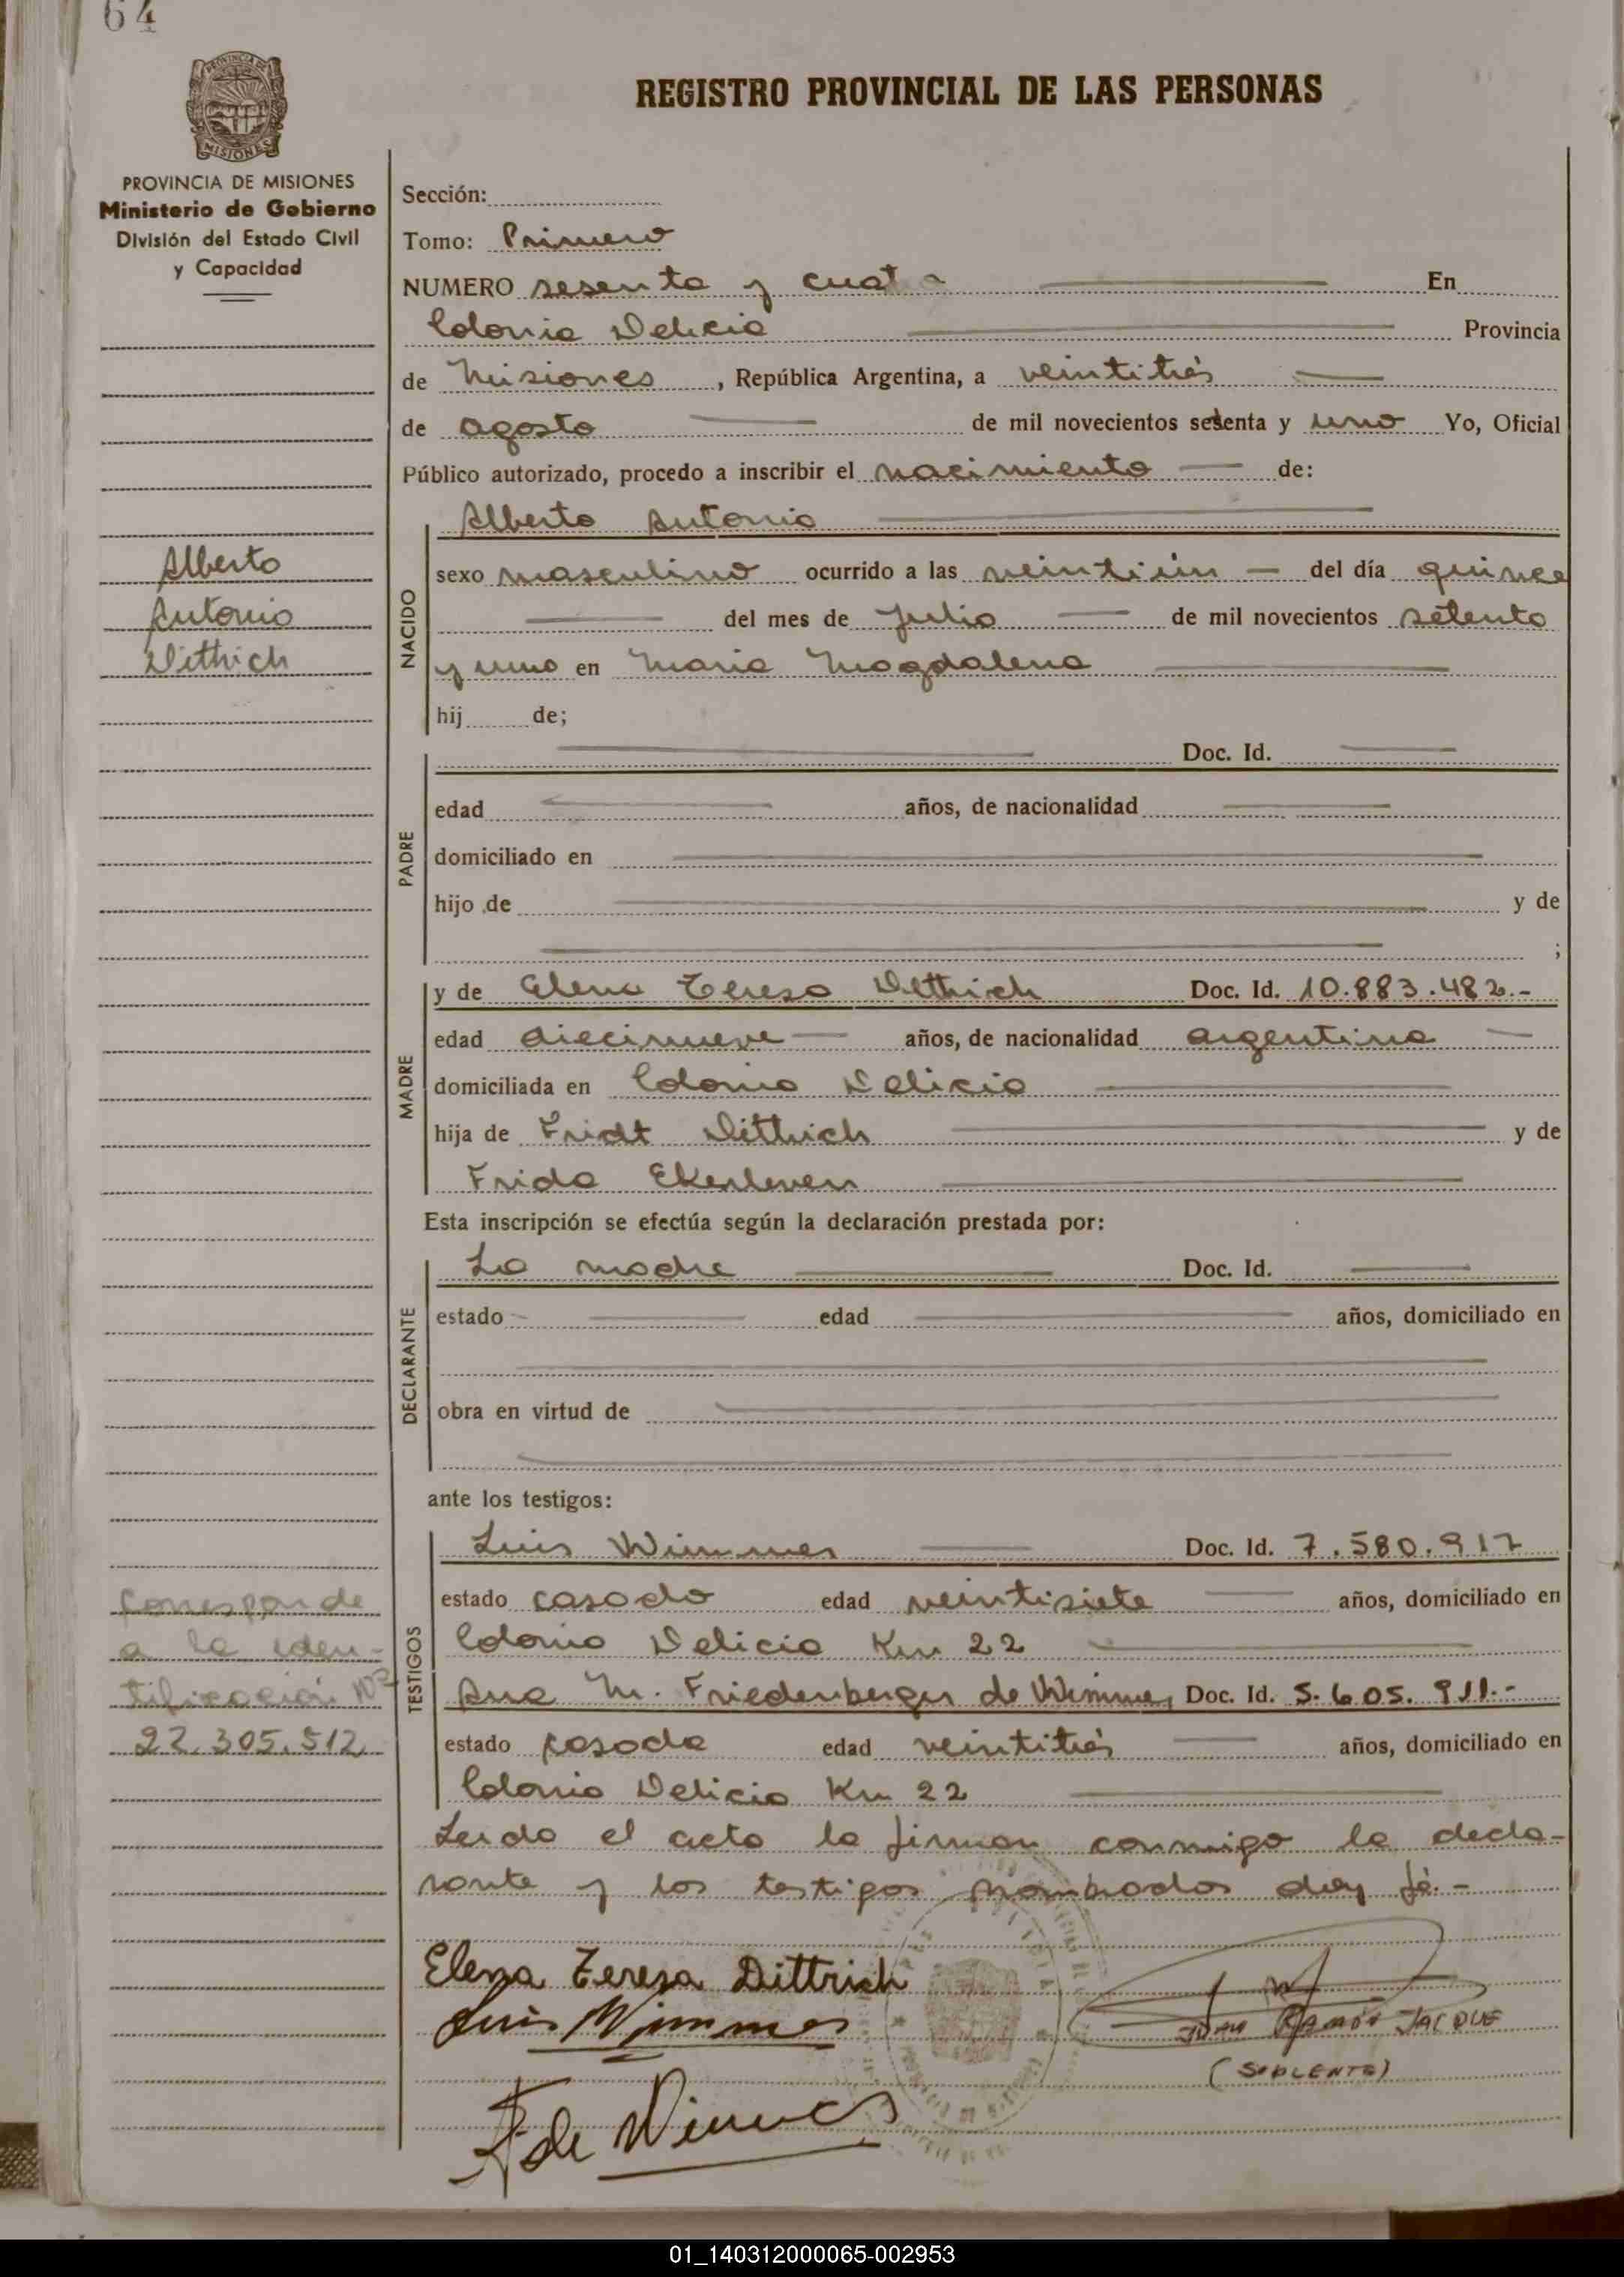 64
REGISTRO PROVINCIAL DE LAS PERSONAS
PROVINCIA DE MISIONES
Ministerio de Gobierno
División del Estado Civil
y Capacidad
Sección:
Tomo: Primero
NUMERO sesenta y cuatro En
Colonia Delicia Provincia
de Misiones, República Argentina, a veintitrés
de agosto de mil novecientos setenta y uno Yo, Oficial
Público autorizado, procedo a inscribir el nacimiento de:
Alberto Antonio
Alberto
Antonio
Dittrich
NACIDO
sexo masculino ocurrido a las veintiún del día quince
del mes de Julio de mil novecientos setenta
y uno en Maria Magdalena
hij de;
PADRE
Doc. Id.
edad años, de nacionalidad
domiciliado en
hijo de y de
;
MADRE
y de Elena Teresa Dittrich Doc. Id. 10.883.482.-
edad diecinueve años, de nacionalidad argentina
domiciliada en Colonia Delicia
hija de Fridt Dittrich y de
Frida Ekerleven
Esta inscripción se efectúa según la declaración prestada por:
DECLARANTE
La madre Doc. Id.
estado edad años, domiciliado en
obra en virtud de
ante los testigos:
TESTIGOS
Luis Wimmer Doc. Id. 7.580.917
estado casado edad veintisiete años, domiciliado en
Colonia Delicia Km 22
Ana M. Friedenberger de Wimmer Doc. Id. 5.605.911.-
estado casada edad veintitrés años, domiciliado en
Colonia Delicia Km 22
Corresponde
a la iden-
tificación Nº
22.305.512
Leida el acta la firman conmigo la decla-
rante y los testigos nombrados doy fé.-
Elena Teresa Dittrich
Luis Wimmer
JUAN RAMÓN JACQUE
(SUPLENTE)
A de Wimmer
01_140312000065-002953